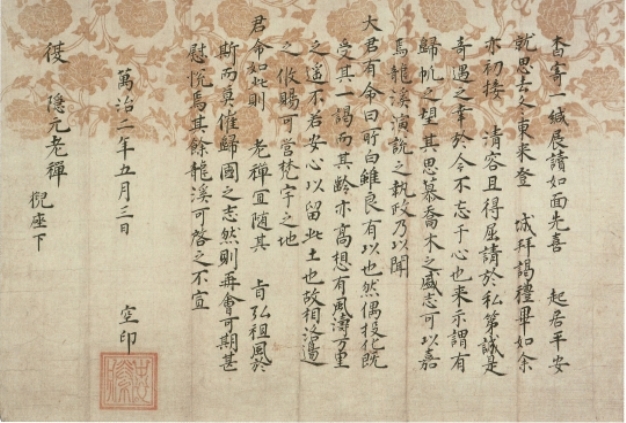 杳寄一緘展讀如面先喜 起居平安
就思去冬東来登 城拜謁禮畢如余
亦初接 清容且得屈請於私第誠是
奇遇之幸於今不忘于心也来示謂有
歸帆之望其思慕喬木之感志可以嘉
焉龍溪演説之執政乃以聞
大君有命曰所白雖良有以也然偶投化既
受其一謁而其齡亦高想有風濤万里
之遥不若安心以留此土也故相洛邊
之攸賜可營梵宇之地
君命如此則 老禪宜随其 旨弘祖風於
斯而莫催歸國之志然則再會可期甚
慰悦焉其餘龍溪可啓之不宣
萬治二年五月三日 空印
復 隠元老禪
猊座下